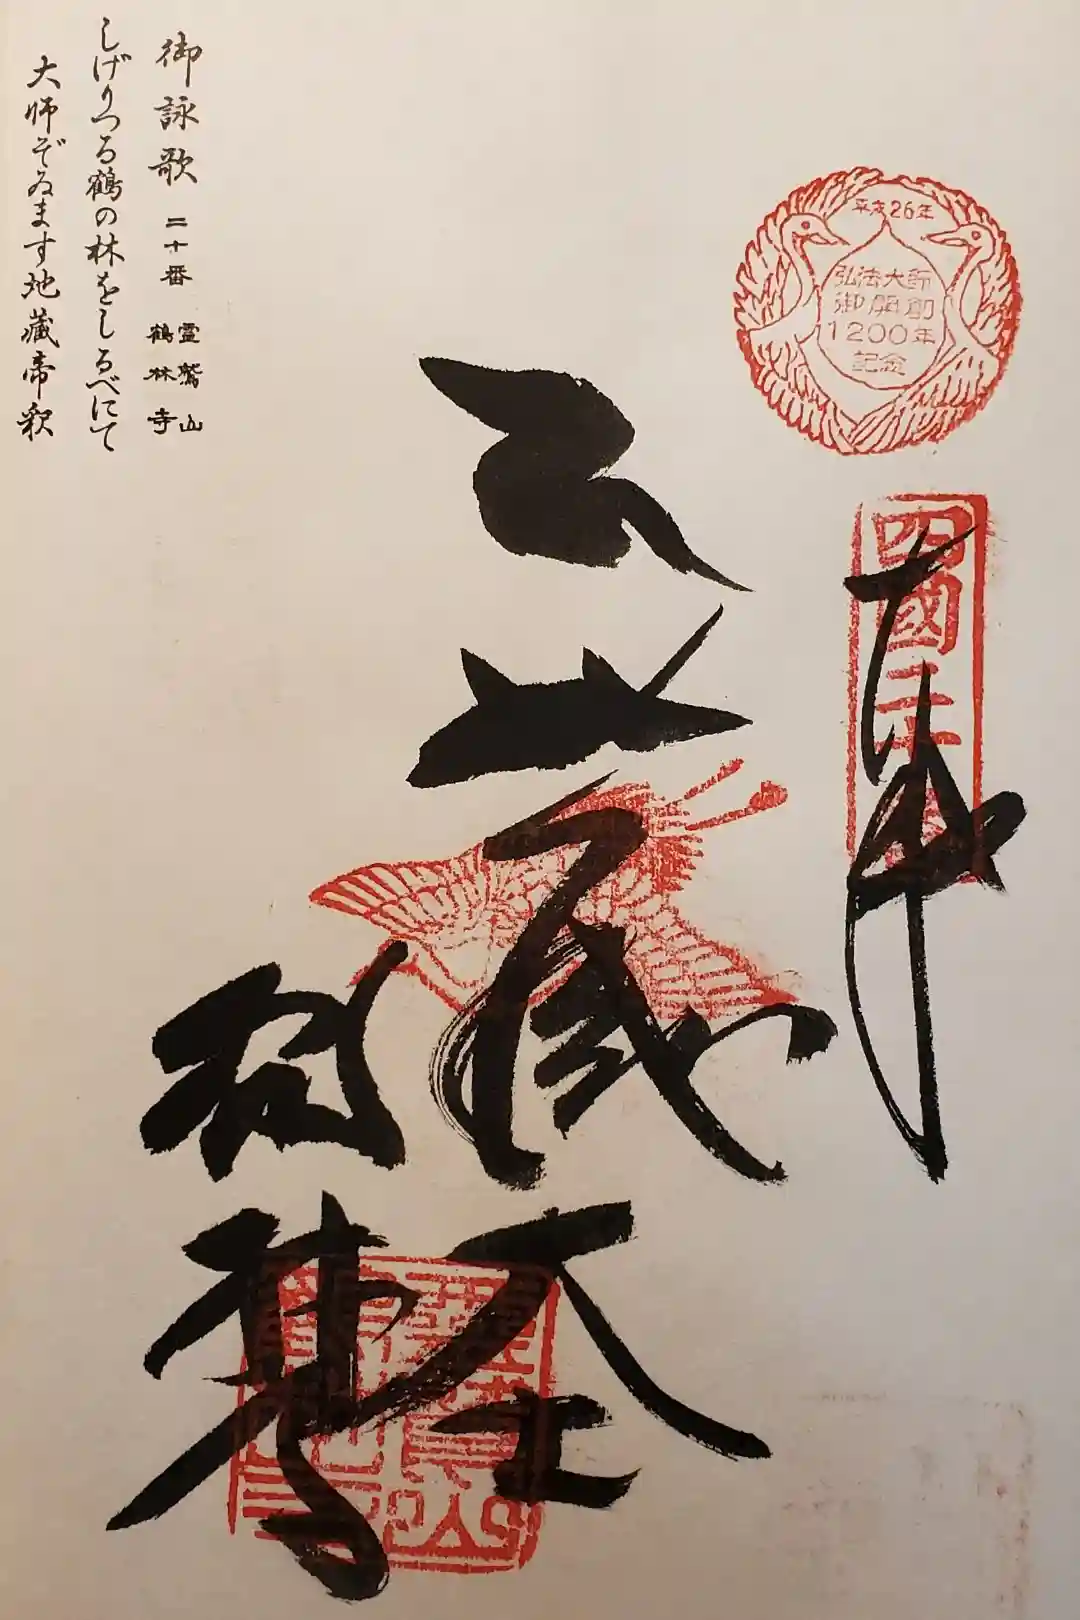 平成26年
弘法大師
御開創
1200年
記念
四國二十番
奉納
地蔵大士
鶴林寺
御詠歌 二十番 霊鷲山 鶴林寺
しげりつる鶴の林をしるべにて
大師ぞゐます地蔵帝釈